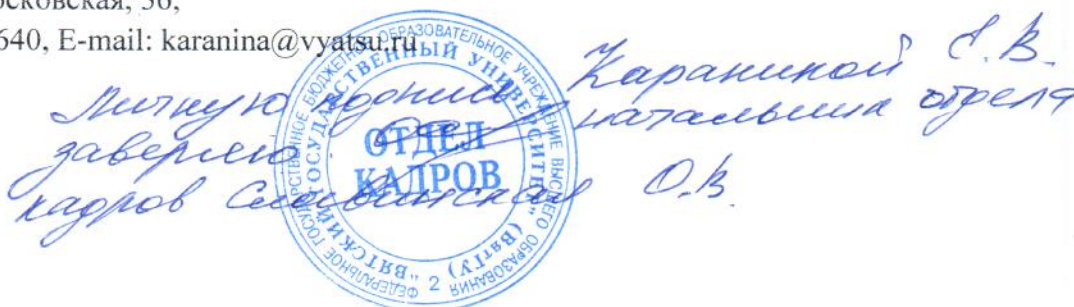 осковская, 36,
640, E-mail: karanina@vyatsu.ru
Личную подпись Караниной Е.В.
заверяю начальник отдела
кадров О.В.
ФЕДЕРАЛЬНОЕ ГОСУДАРСТВЕННОЕ БЮДЖЕТНОЕ ОБРАЗОВАТЕЛЬНОЕ УЧРЕЖДЕНИЕ ВЫСШЕГО ОБРАЗОВАНИЯ
"ВЯТСКИЙ ГОСУДАРСТВЕННЫЙ УНИВЕРСИТЕТ" (ВятГУ)
ОТДЕЛ
КАДРОВ
2